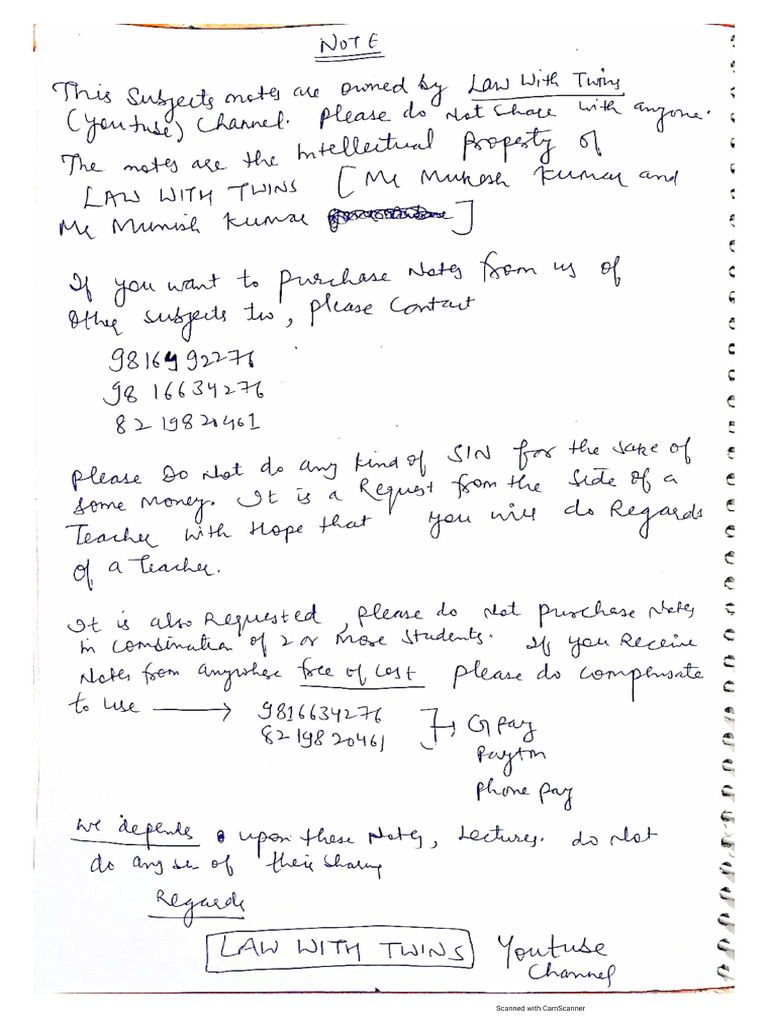 NOTE
This Subjects notes are owned by Law With Twins
(Youtuse) Channel. Please do Not Share with anyone.
The notes are the Intellectual Property of
LAW WITH TWINS [Mr Mukesh Kumar and
Mr Munish Kumar ]
If you want to purchase Notes from us of
Other subjects two, please Contact
9816492276
9816634276
8219820461
Please Do Not do any kind of SIN for the sake of
some Money. It is a Request from the side of a
Teacher with Hope that you will do Regards
of a Teacher.
It is also Requested, please do Not purchase Notes
in combination of 2 or more students. If you Receive
Notes from anywhere free of Cost please do compensate
to use → 9816634276
8219820461
G pay
Paytm
Phone pay
We depends upon these Notes, Lectures. do Not
do any of their sharing
Regards
LAW WITH TWINS Youtuse
Channel
Scanned with CamScanner